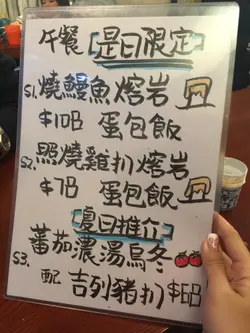 午餐【是日限定】
S1. 燒鰻魚熔岩
$10B 蛋包飯
S2. 照燒雞扒熔岩
$7B 蛋包飯
夏日推介
蕃茄濃湯烏冬
S3. 配 吉列豬扒 $6B